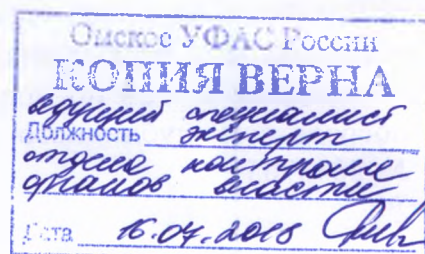 Омское УФАС России
КОПИЯ ВЕРНА
ведущий специалист
Должность эксперт
отдела контроля
органов власти
Дата 16.04.2018